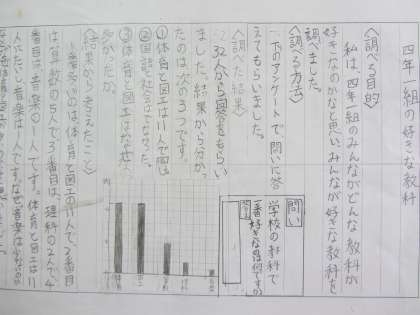 四年 組の好きな教科
〈調べる目的〉
私は、四年 組のみんながどんな教科が
好きなのかなと思い、みんなが好きな教科を
調べました。
〈調べる方法〉
下のアンケートで、問いに答
えてもらいました。
〈調べた結果〉
32人から回答をもらい
ました。結果から分かっ
たのは次の3つです。
①体育と図工は11人で同じ
②国語を
③体育と図工は
かったか。
〈結果から考えたこと〉
1番多いのは体育と図工の11人で、2番目
は算数の5人で3番目は理科の2人で、4
番目は音楽の1人です。体育と図工は11
人にたいし、音楽は1人です。なぜ音楽は少ないのか
問い
学校の教科で
1番好きなのは何ですか
答え
体育
図工
算数
理科
音楽